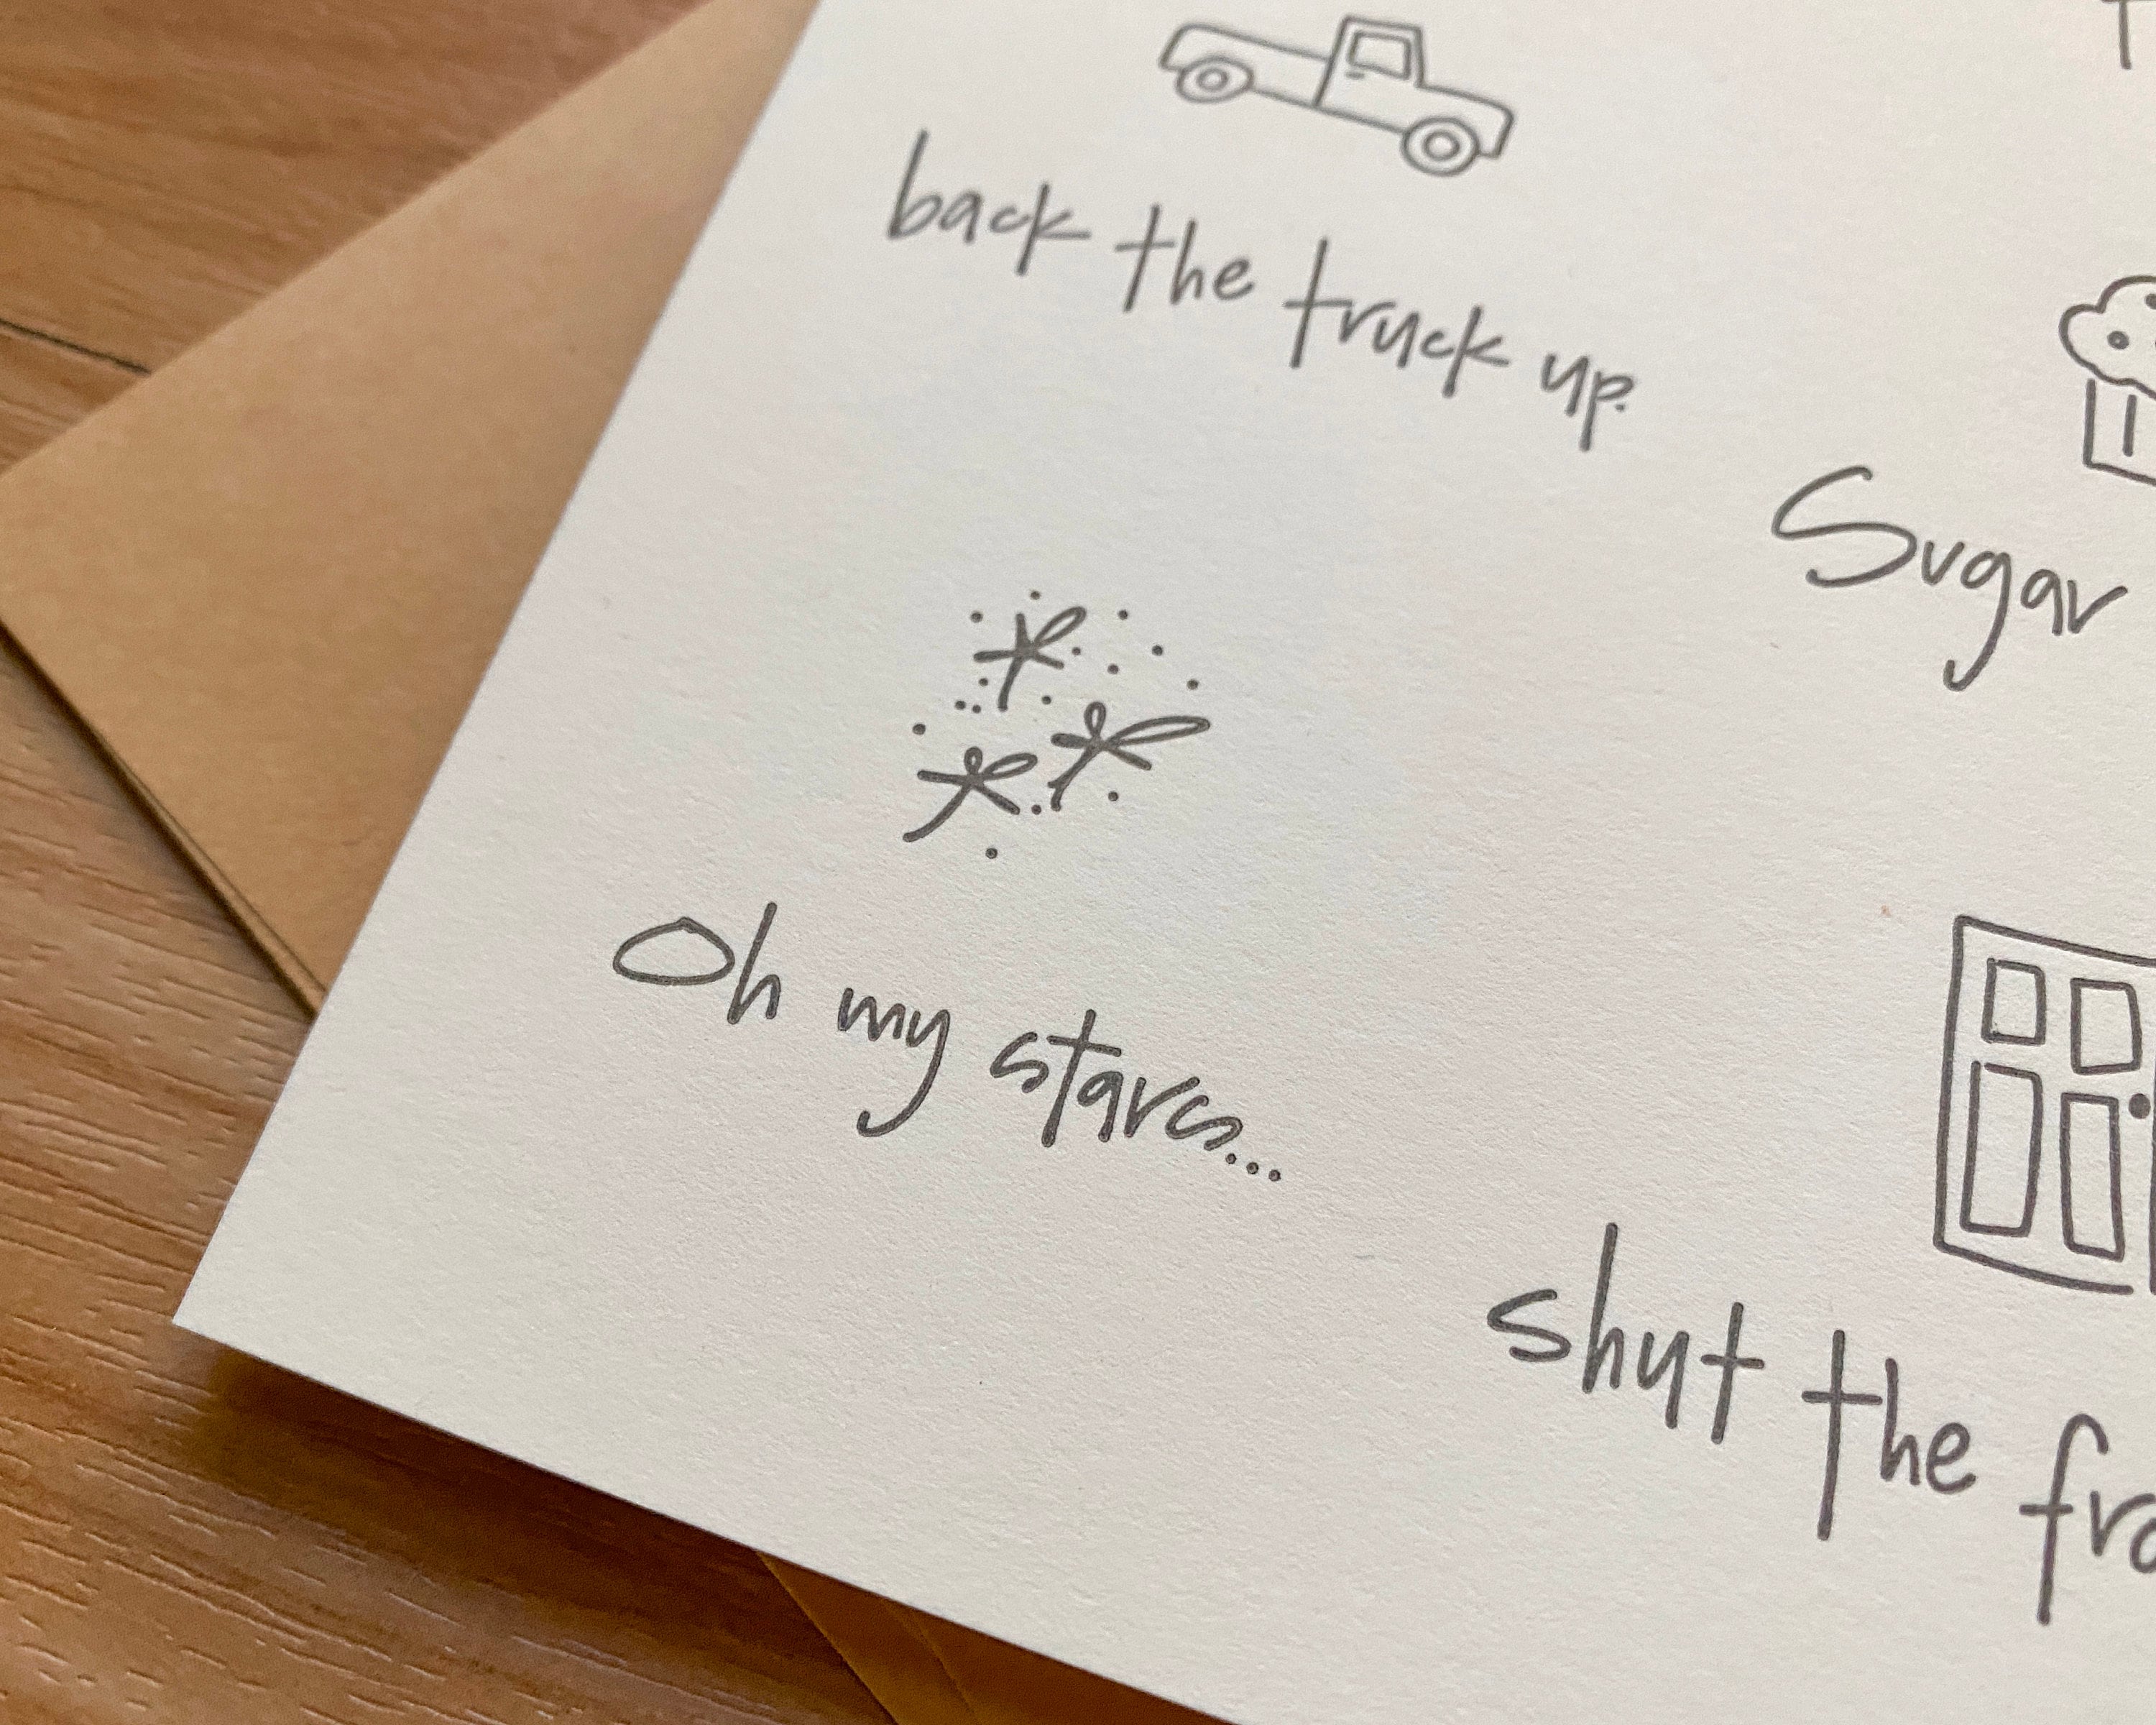 back the truck up.
Sugar
Oh my stars...
shut the fro